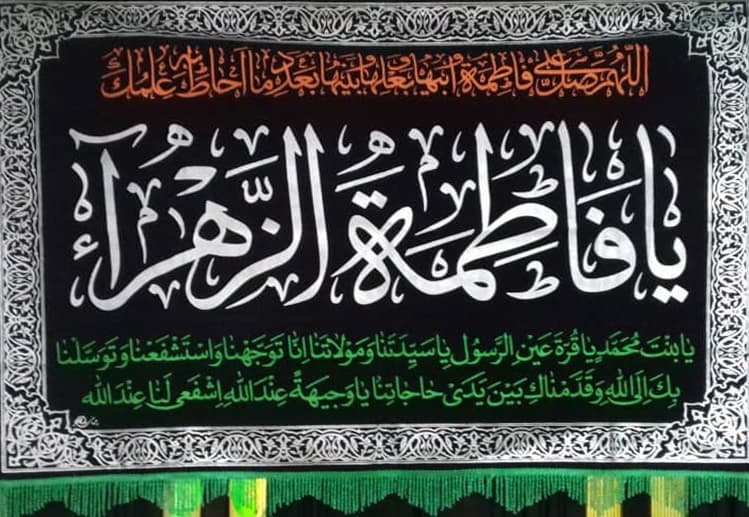 اللهم صل علی فاطمة وابیها وبعلها وبنیها بعدد ما احاط به علمك
یا فاطمة الزهراء
یا بنت محمد یا قرة عین الرسول یا سیدتنا ومولاتنا انا توجهنا واستشفعنا وتوسلنا
بك الی الله وقدمناك بین یدی حاجاتنا یا وجیهة عند الله اشفعی لنا عند الله